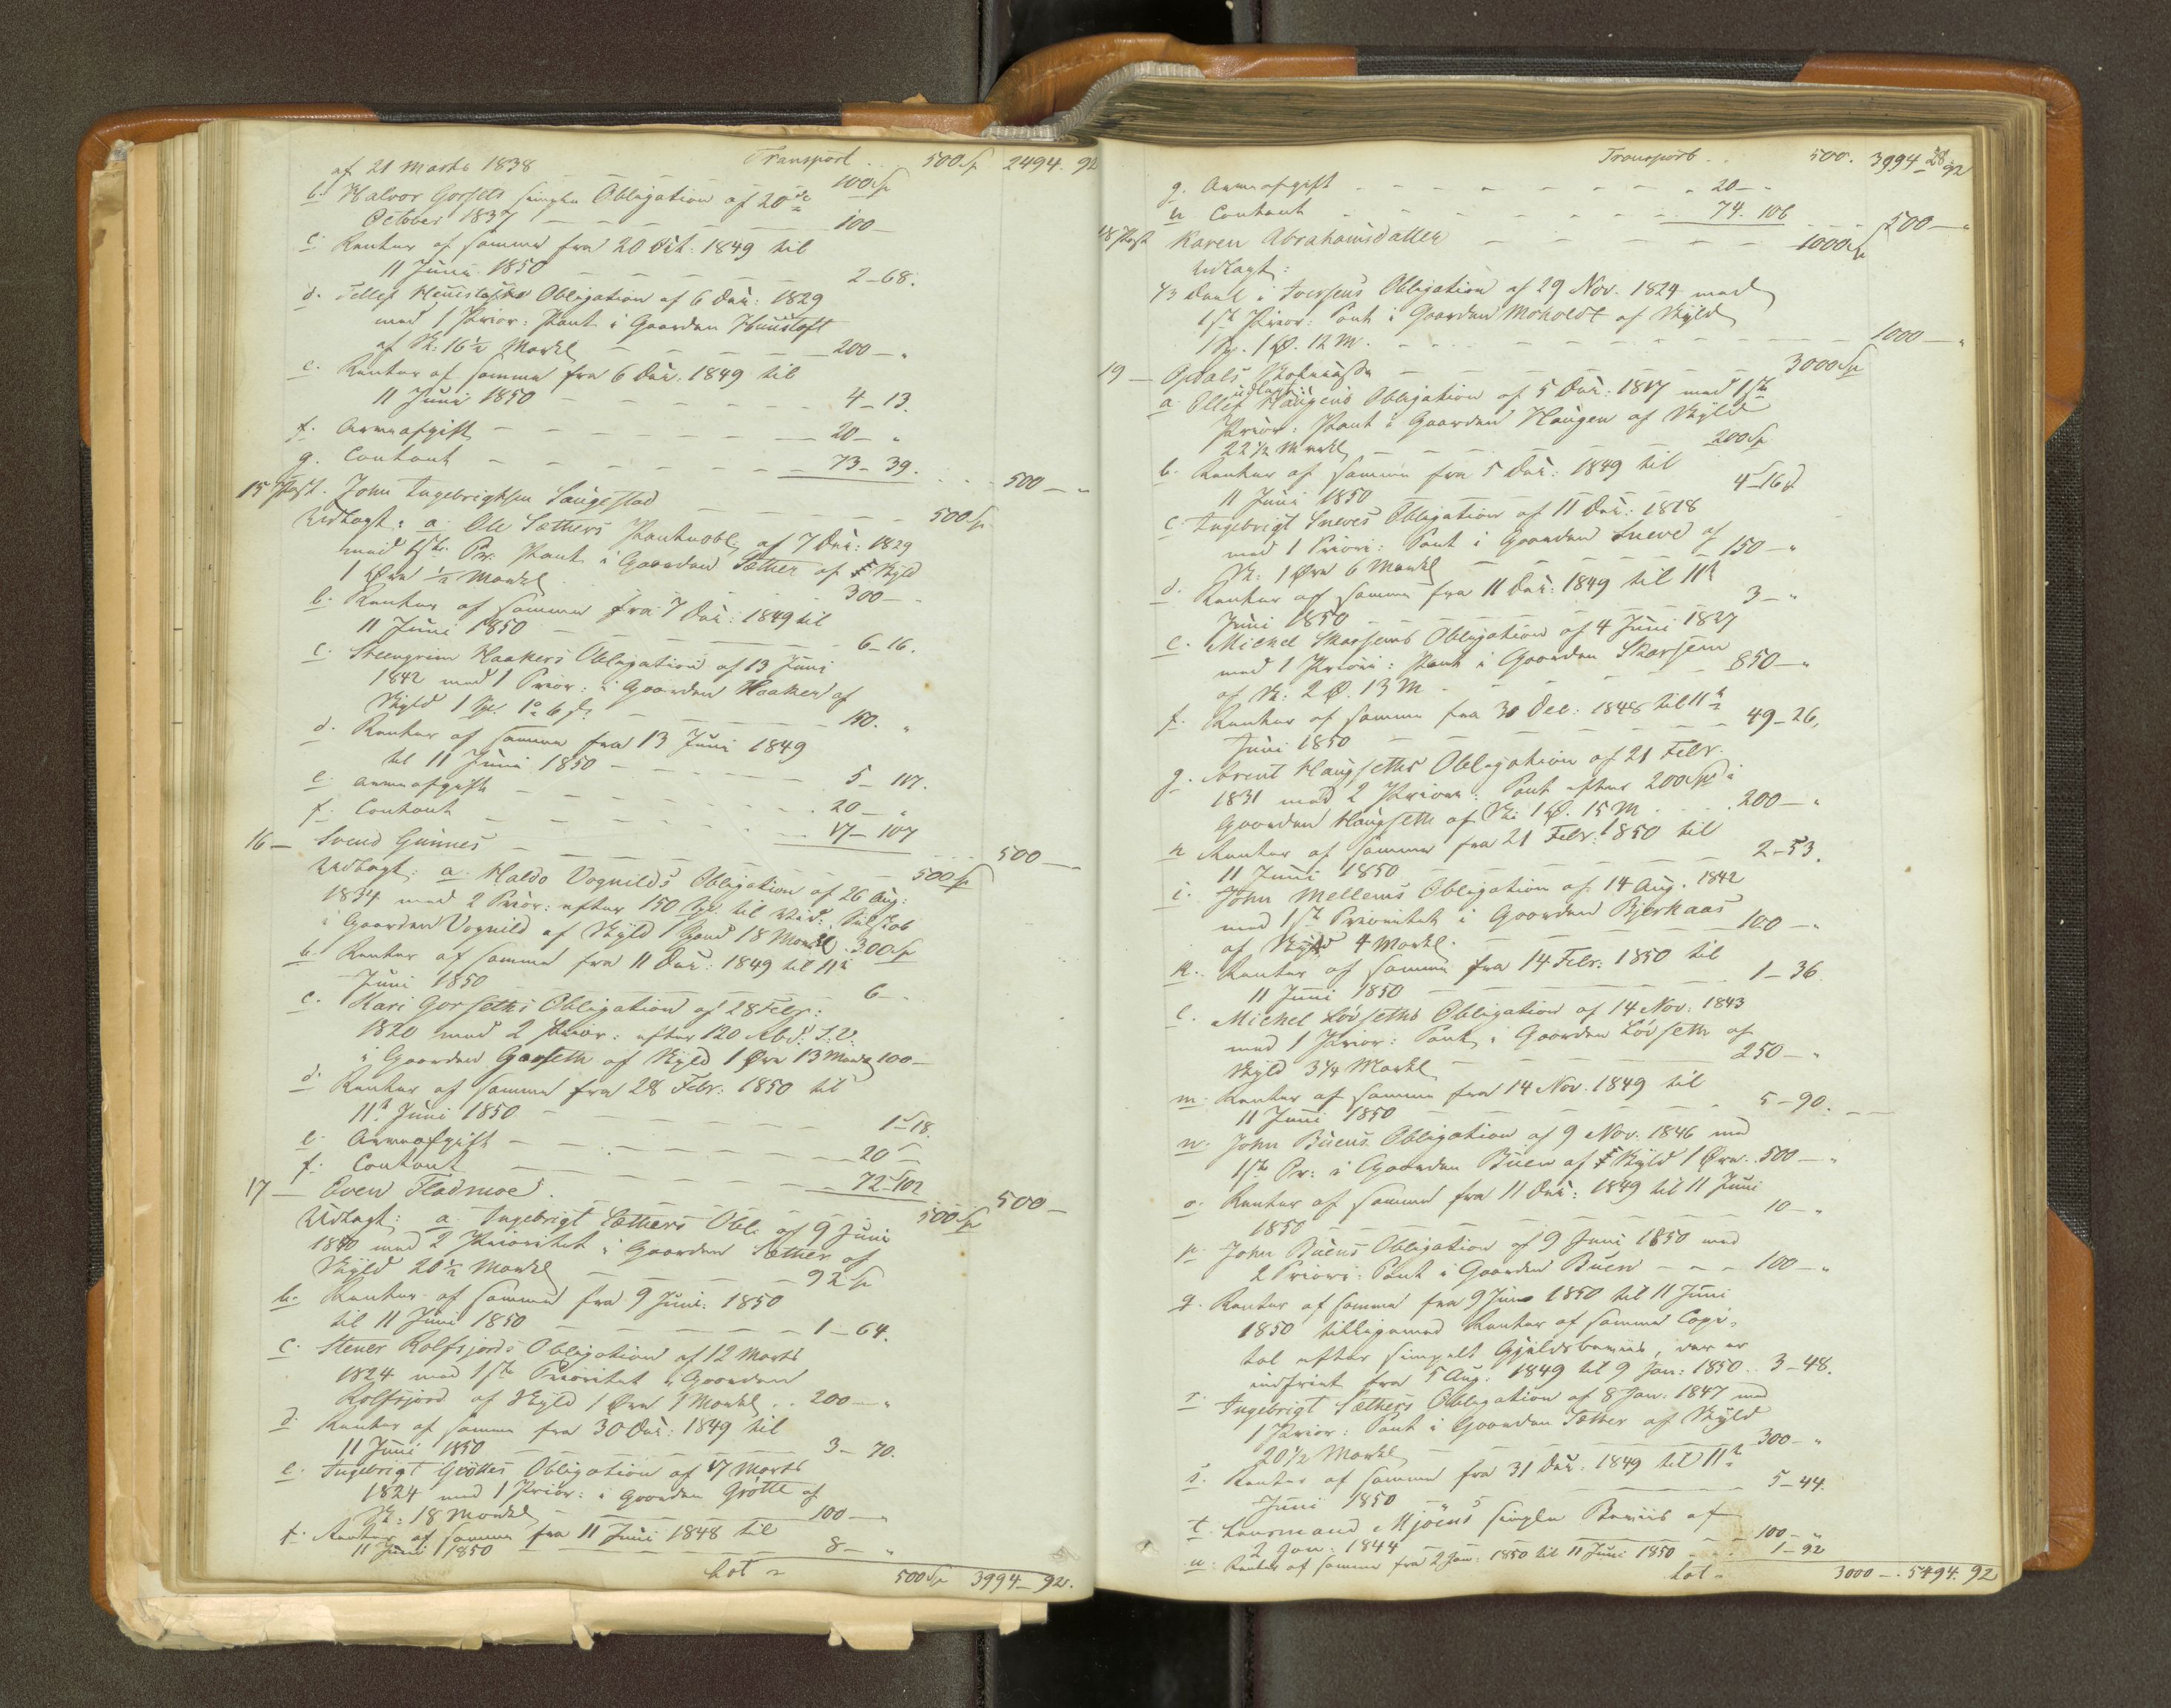 af 21 Marts 1838 Transport . . 500 Sp 2494. 92
100 Sp
b. Halvor Gorsets simple Obligation af 20de
October 1837 — — — 100 —
c. Renter af samme fra 20 Oct. 1849 til
11 Juni 1850 — — — 2 - 68.
d. Obligation af 6 Dec: 1829
med 1 Prior: Pant i Gaarden
af Sk: 16 1/2 Markl — — 200 — "
e. Renter af samme fra 6 Dec: 1849 til
11 Juni 1850 — — — 4 - 13.
f. Armeafgift — — — 20 - "
g. Contant — — — 73 - 39. . . . 500 — "
15 Post. John Ingebrigtsen Laugestad — — — 500 Sp
Udlagt: a. Ole Sæthers Panteobl. af 7 Dec: 1829
med 1ste Pr. Pant i Gaarden Sæther af Skyld
1 Øre 1/2 Markl . . 300 —
b. Renter af samme fra 7 Dec: 1849 til
11 Juni 1850 — — — 6 - 16.
c. Steengrim Haakers Obligation af 13 Juni
1842 med 1 Prior: i Gaarden Haaker af
Skyld — — 150. "
d. Renter af samme fra 13 Juni 1849
til 11 Juni 1850 — — — 5 - 117.
e. Armeafgift — — — 20 — "
f. Contant — — — 17 - 107
16 — Svend Gunnes — — — 500 Sp 500 —
Udlagt: a. Haldo Vognilds Obligation af 26 Aug:
1834 med 2 Prior: efter 150 Sp til
i Gaarden Vognild af Skyld 1 18 Markl . 300 Sp
b. Renter af samme fra 11 Dec: 1849 til 11te
Juni 1850 — — — 6 - "
c. Kari Gorseths Obligation af 28 Febr:
1820 med 2 Prior: efter 120 Rbd: S.V.
i Gaarden Gorseth af Skyld 1 Øre 13 Markl 100 —
d. Renter af samme fra 28 Febr: 1850 til
11te Juni 1850 — — — 1 - 18.
e. Armeafgift — — — 20 —
f. Contant — — — 72 - 102
17 — Even Fladmoe . — — — 500 Sp 500 —
Udlagt: a. Ingebrigt Sæthers Obl. af 9 Juni
1840 med 2 Prioritet i Gaarden Sæther af
Skyld 20 1/2 Markl — — — 92 Sp
b. Renter af samme fra 9 Juni 1850
til 11 Juni 1850 — — — 1 - 64.
c. Stener Rolfsjords Obligation af 12 Marts
1824 med 1ste Prioritet i Gaarden
Rolfsjord af Skyld 1 Øre 1 Markl . . 200 — "
d. Renter af samme fra 30 Dec: 1849 til
11 Juni 1850 — — — 3 - 70.
e. Ingebrigt Gröttes Obligation af 17 Marts
1824 med 1 Prior: i Gaarden Grötte af
Sk: 18 Markl — — — 100 — "
f. Renter af samme fra 11 Juni 1848 til
11 Juni 1850 — — — 8 — "
Lat = 500 Sp 3994 - 92.
Transport . . 500. 3994 - 92
g. Armeafgift — — — 20 — "
h. Contant — — — 74. 106 . . . 500 — "
18 Post Karen Abrahamsdatter — — — 1000 Sp
Udlagt:
1/3 Deel i Iversens Obligation af 29 Nov. 1824 med
1ste Prior: Pant i Gaarden Moholdt af Skyld
1 Sp. 1 Ø. 12 M. — — — 1000 — "
19 — Opdals — — — 3000 Sp
udlagt:
a. Ellef Haugens Obligation af 5 Dec: 1817 med 1ste
Prior: Pant i Gaarden Haugen af Skyld
22 1/2 Markl — — — 200 Sp
b. Renter af samme fra 5 Dec: 1849 til
11 Juni 1850 — — — 4 - 16
c. Ingebrigt Sneves Obligation af 11 Dec: 1818
med 1 Priori: Pant i Gaarden Sneve af
Sk: 1 Øre 6 Markl — — 150 — "
d. Renter af samme fra 11 Dec: 1849 til 11te
Juni 1850 — — — 3 — "
e. Mickel Skarsems Obligation af 4 Juni 1827
med 1 Priori: Pant i Gaarden Skarsem
af Sk: 2 Ø. 13 M . — — 850 — "
f. Renter af samme fra 30 Dec: 1848 til 11te
Juni 1850 — — — 49 - 26.
g. Arent Haugseths Obligation af 21 Febr.
1831 med 2 Priori: Pant efter 200 Sp i
Gaarden Haugseth af Sk: 1 Ø. 15 M . . . 200 — "
h. Renter af samme fra 21 Febr: 1850 til
11 Juni 1850 — — — 2 - 53.
i. John Mellems Obligation af 14 Aug. 1842
med 1ste Prioritet i Gaarden Bjerkaas
af Skyld 4 Markl. — — — 100 — "
k. Renter af samme fra 14 Febr: 1850 til
11 Juni 1850 — — — 1 - 36
l. Mickel Lövseths Obligation af 14 Nov: 1843
med 1 Prior: Pant i Gaarden Lövseth af
Skyld 3 1/4 Markl — — — 250 — "
m. Renter af samme fra 14 Nov. 1849 til
11 Juni 1850 — — — 5 - 90.
n. John Buens Obligation af 9 Nov. 1846 med
1ste Pr: i Gaarden Buen af Skyld 1 Øre . 500 — "
o. Renter af samme fra 11 Dec: 1849 til 11 Juni
1850 — — — 10 — "
p. John Buens Obligation af 9 Juni 1850 med
2 Priori: Pant i Gaarden Buen — — — 100 — "
q. Renter af samme fra 9 Juni 1850 til 11 Juni
1850 tilligemed Renter af samme Capi-
tal efter simpelt Gjældsbeviis, der er
indfriet fra 5 Aug: 1849 til 9 Jan: 1850 . . 3 - 48.
r. Ingebrigt Sæthers Obligation af 8 Jan: 1847 med
1 Prior: Pant i Gaarden Sæther af Skyld
20 1/2 Markl — — — 300 — "
s. Renter af samme fra 31 Dec: 1849 til 11te
Juni 1850 — — — 5 - 44.
t. Lensmand Mjöens simple Beviis af
2 Jan: 1844 — — — 100 — "
u. Renter af samme fra 2 Jan: 1850 til 11 Juni 1850 — . . 1 - 92
Lat = 3000 — . 5494. 92